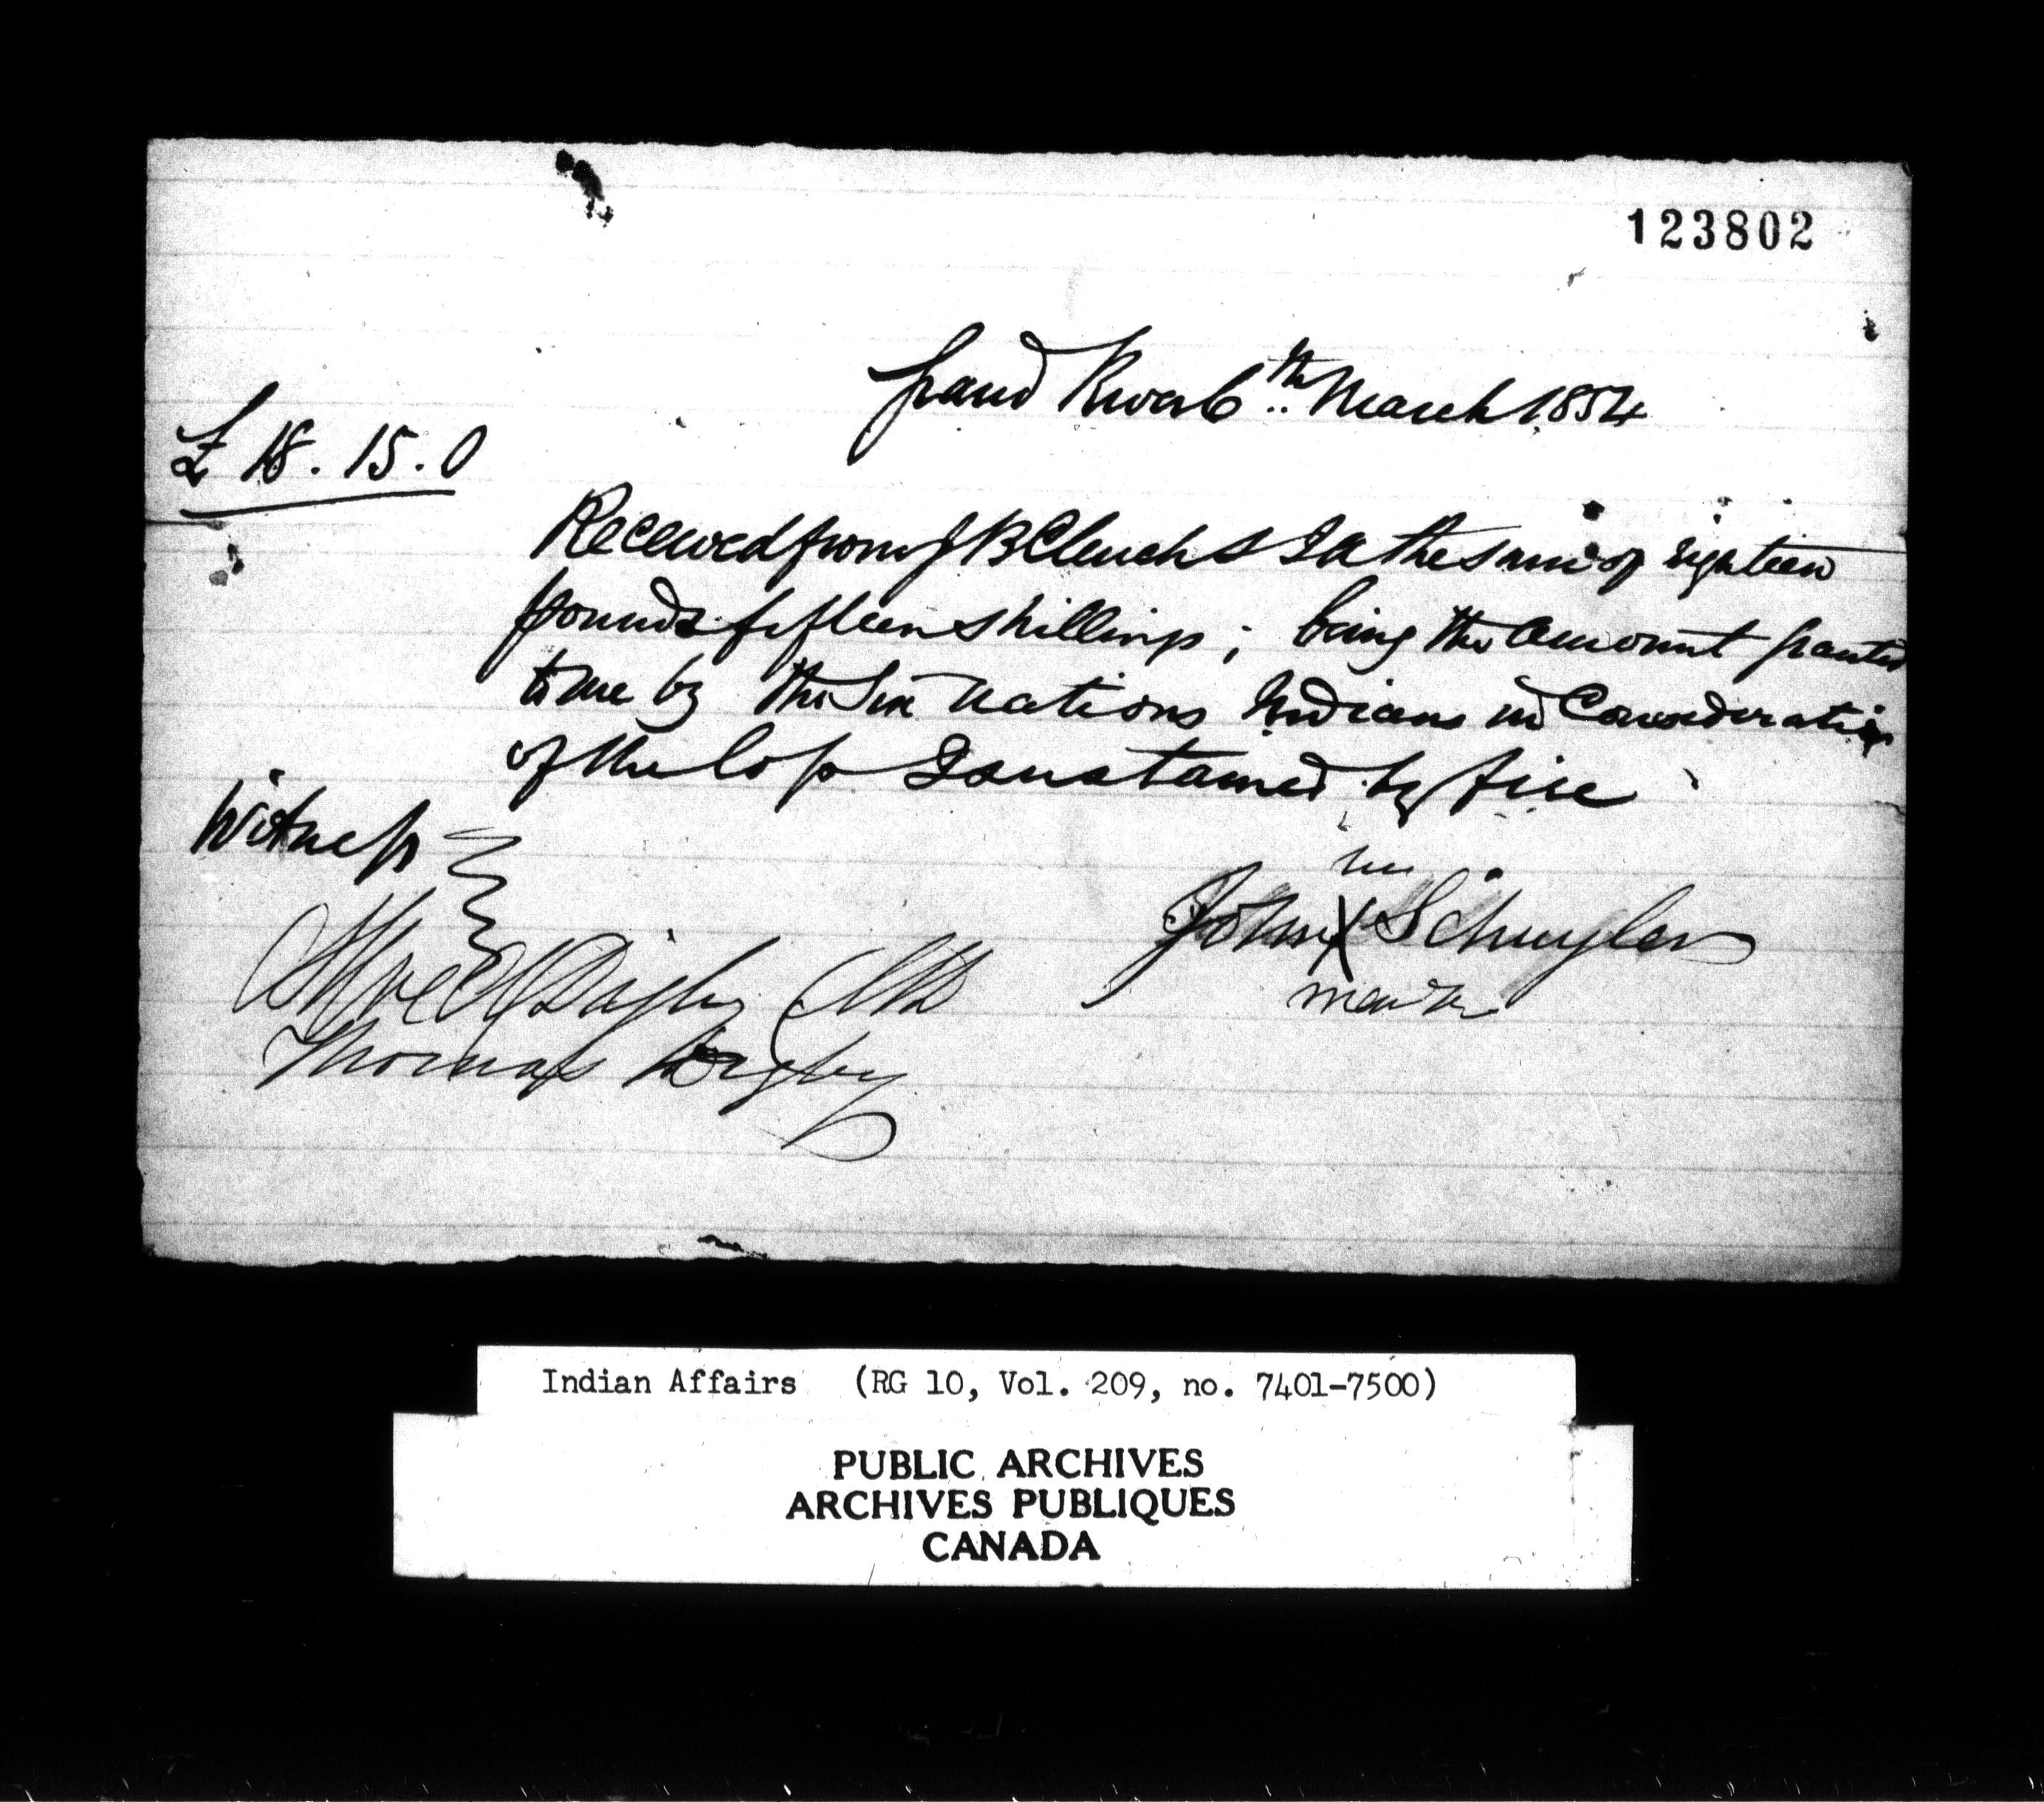 123802
Grand River 6th March 1854
£ 18. 15. 0
Received from J B Clench the sum of eighteen
pounds fifteen shillings; being the amount granted
to me by the Six Nations Indians in Consideration
of the loss I sustained by fire
Witness
his
John X Schuyler
mark
Alfred Digby MD
Thomas Digby
Indian Affairs (RG 10, Vol. 209, no. 7401-7500)
PUBLIC ARCHIVES
ARCHIVES PUBLIQUES
CANADA